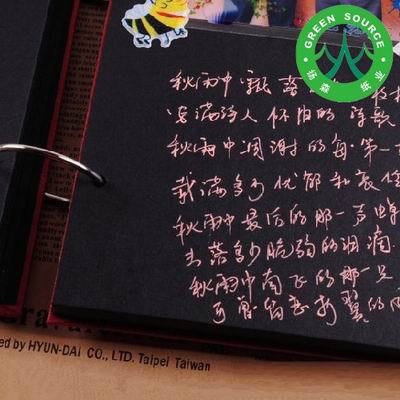 GREEN SOURCE
纸业
秋雨中飘落
诗人怀旧的诗歌
秋雨中凋谢的每第一
载满多少忧郁和哀
秋雨中最后的那一声蝉
多少脆弱的泪滴
秋雨中南飞的那一只
可曾留恋折翼的
ed by HYUN-DAI CO., LTD. Taipei Taiwan